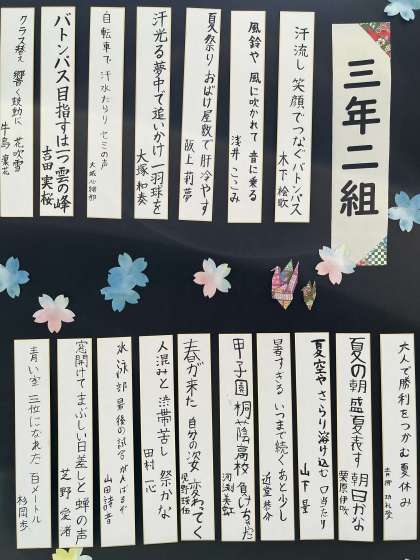 三年二組
汗流し 笑顔でつなぐバトンパス
木下 絵歌
風鈴や 風に吹かれて 音に乗る
浅井 ここみ
夏祭り おばけ屋敷で 肝冷やす
阪上 莉夢
汗光る 夢中で追いかけ 一羽球を
大塚 和奏
自転車で 汗水たらり セミの声
大城
バトンパス 目指すは一つ 雲の峰
吉田 実桜
クラス替え 響く鼓動に 花吹雪
牛島
大人で 勝利をつかむ 夏休み
夏の朝 盛夏表す 朝日かな
栗原 伊吹
夏空や さらり溶け込む 口当たり
山下 昊
暑すぎる いつまで続く あと少し
近堂 恭介
甲子園 桐蔭高校 負けちゃった
河渕 美虹
春が来た 自分の姿 変わってく
人混みと 渋滞苦し 祭かな
田村 一心
水泳部 最後の試合 がんばるぞ
山田 詩音
窓開けて まぶしい日差しと 蝉の声
芝野 愛渚
青い空 三位になれた 百メートル
杉岡 歩